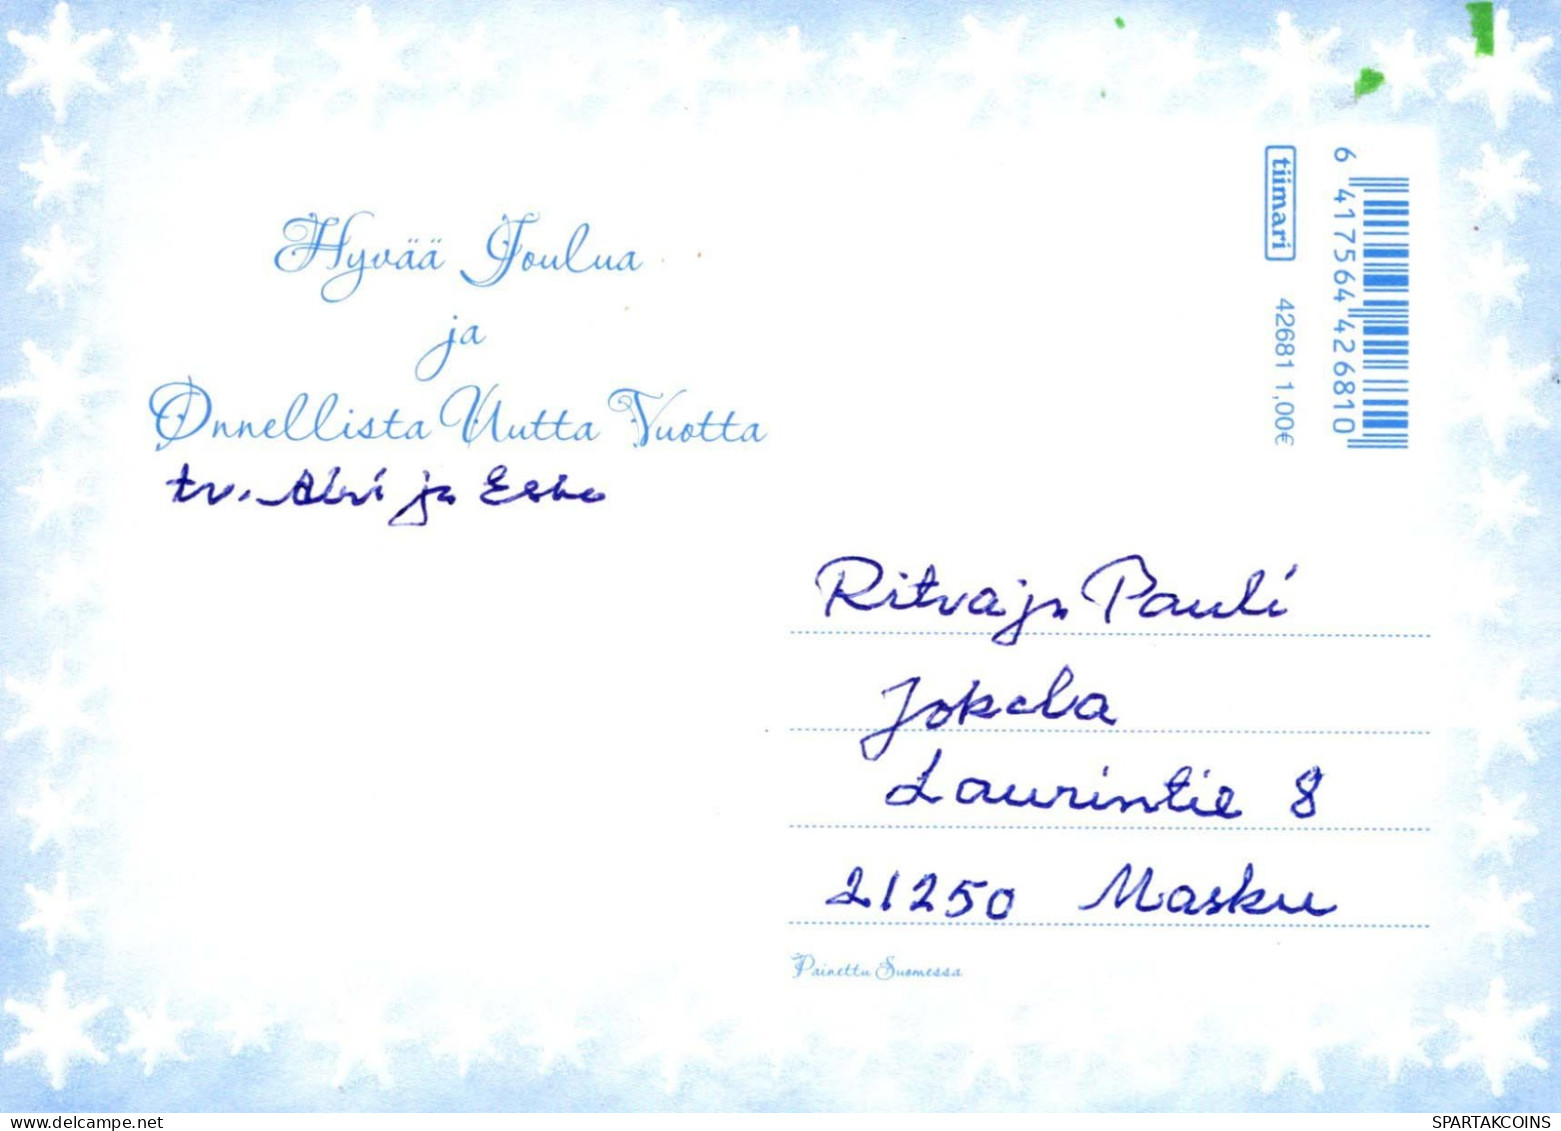 Hyvää Joulua
ja
Onnellista Uutta Vuotta
tv. Alvi ja Esko
tiimari
42681 1,00€
6 417564 426810
Ritva ja Pauli
Jokela
Laurintie 8
21250 Masku
Painettu Suomessa
https://www.delcampe.net
SPARTAKCOINS